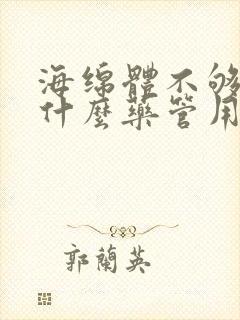 海绵體不够
什麼藥管用
郭蘭英